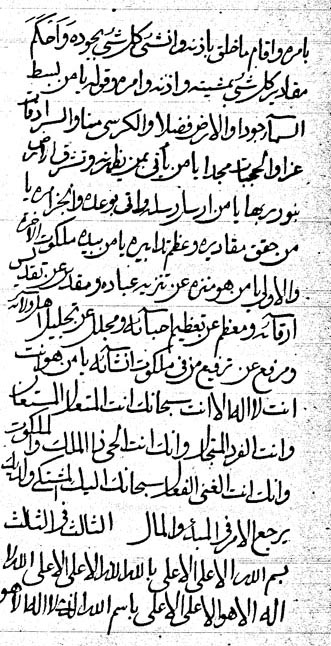 بامره واقام ماخلق باذنه وانشئ كلرشئ بجوده واحكم
مقادير كلرشئ بمشيته واذنه وامره وقوله يا من بسط
السماء جودا والارض فضلا والكرسى منا والسرادقات
عزا والحجبات مجدا يا من يأتى بمن يظهره وتشرق الارض
بنور ربها يا من ارسل رسله واوفى بوعده يا
من حقق مقاديره وعظم تدابيره يا من بيده ملكوت الاخرة
والاولى يا من هو منزه عن تنزيه عباده ومقدس عن تقديس
ارقائه ومعظم عن تعظيم احبائه ومجلل عن تجليل
ومرفع عن ترفيع من فى ملكوت انشائه يا من هو انت
انت لا اله الا انت سبحانك انت المتعال
وانت الفرد وانك انت الحى ذا الملك والملكوت
وانك انت الغنى الفعال سبحانك اليك المشتكى واليك
يرجع الامر فى المبدء والمال الثالث فى الثالث
بسم الله الاعلى الاعلى بالله الله الاعلى الاعلى الله لا
اله الا هو الاعلى الاعلى باسم الله لا اله الا هو